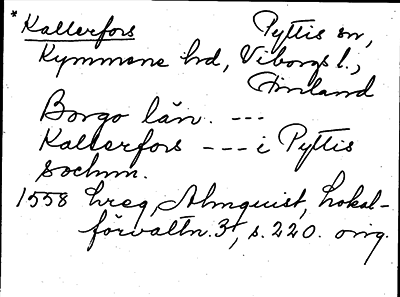 * Kallerfors Pyttis sn,
Kymmene hd, Viborgs l.,
Finland
Borgo län. ---
Kallerfors --- i Pyttis
sochnn.
1558 hreg, Almquist, Lokal-
förvaltn. 3, s. 220. omg.